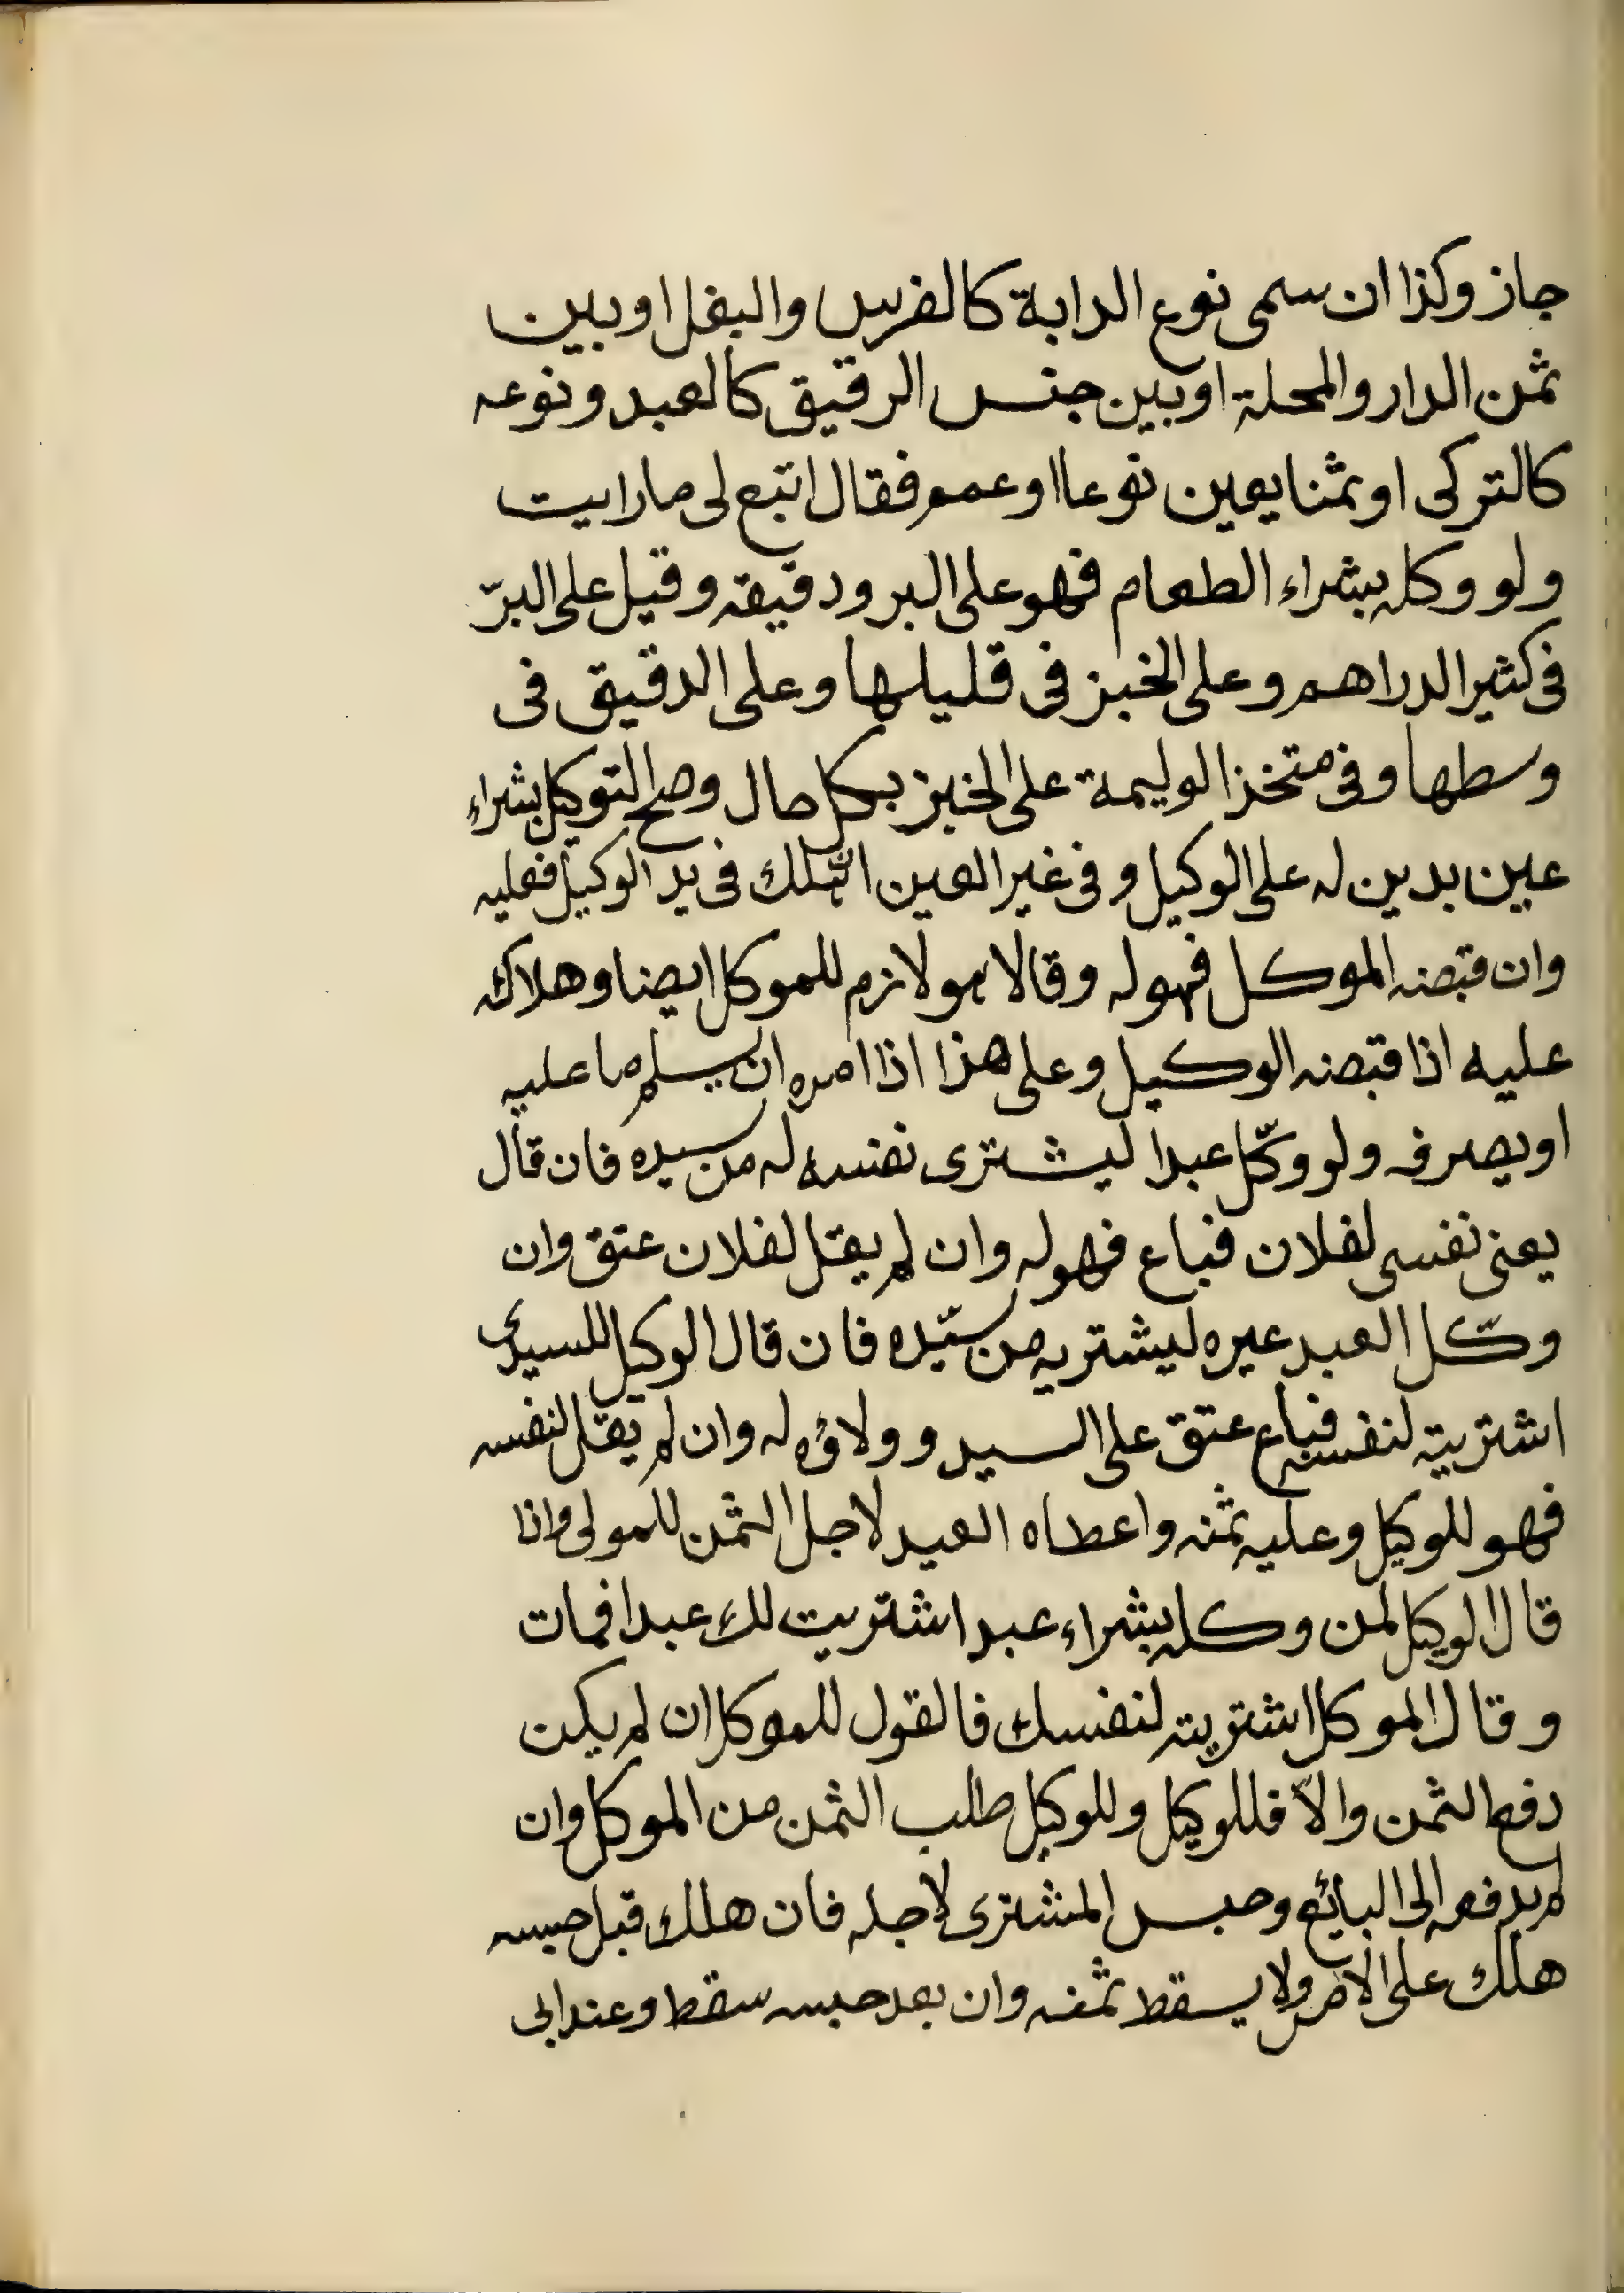 جاز وكذا ان سمى نوع الدابة كالفرس والبغل او بين
ثمن الدار والمحلة او بين جنس الرقيق كالعبد ونوعه
كالتركى او ثمنا يعين نوعا او عمم فقال اتبع لى ما رايت
ولو وكله بشراء الطعام فهو على البر ودقيقه وقيل على البرّ
فى كثير الدراهم وعلى الخبز فى قليلها وعلى الدقيق فى
وسطها وفى متخذ الوليمة على الخبز بكل حال وصح التوكيل بشراء
عين بدين له على الوكيل وفى غير العين ان هلك فى يد الوكيل فعليه
وان قبضه الموكل فهو له وقالا هو لازم للموكل ايضا وهلاكه
عليه اذا قبضه الوكيل وعلى هذا اذا امره ان يسلم ما عليه
او يصرفه ولو وكّل عبدا ليشترى نفسه له من سيده فان قال
بعنى نفسى لفلان فباع فهو له وان لم يقل لفلان عتق وان
وكّل العبد غيره ليشتريه من سيّده فان قال الوكيل للسيدى
اشتريته لنفسه فباع عتق على السيد وولاؤه له وان لم يقل لنفسه
فهو للوكيل وعليه ثمنه واعطاه العبد لاجل الثمن للمولى واذا
قال الوكيل لمن وكله بشراء عبد اشتريت لك عبدا فمات
وقال الموكل اشتريته لنفسك فالقول للموكل ان لم يكن
دفع الثمن والاّ فللوكيل وللوكيل طلب الثمن من الموكل وان
لم يدفعه الى البائع وحبس المشترى لاجله فان هلك قبل حبسه
هلك على الآمر ولا يسقط ثمنه وان بعد حبسه سقط وعند ابى